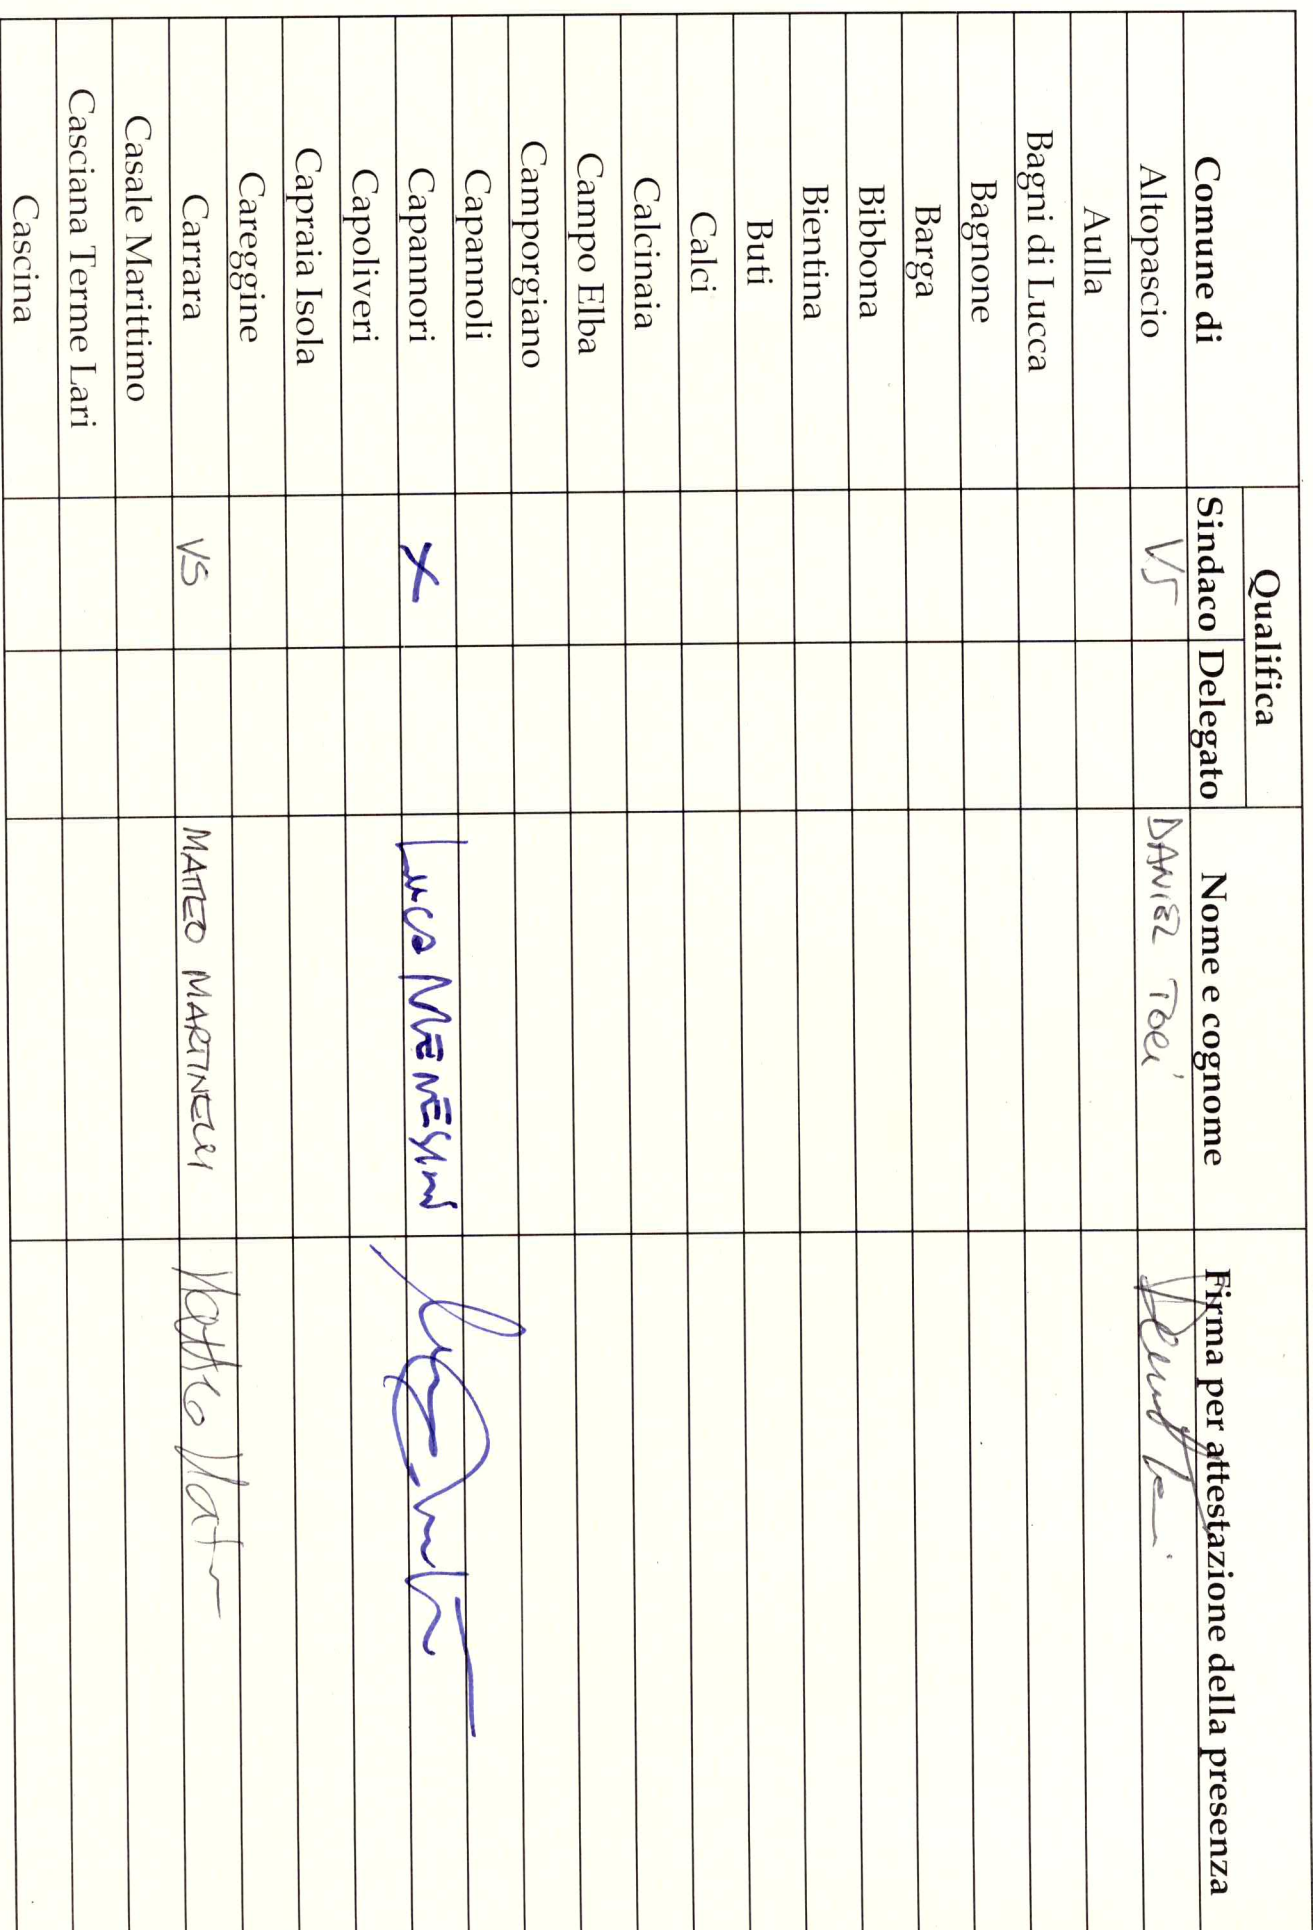 Qualifica
Comune di Sindaco Delegato Nome e cognome Firma per attestazione della presenza
Altopascio VS DANIEL TOCI
Aulla
Bagni di Lucca
Bagnone
Barga
Bibbona
Bientina
Buti
Calci
Calcinaia
Campo Elba
Camporgiano
Capannoli
Capannori X LUCA MENESINI
Capoliveri
Capraia Isola
Careggine
Carrara VS MATTEO MARTINELLI
Casale Marittimo
Casciana Terme Lari
Cascina